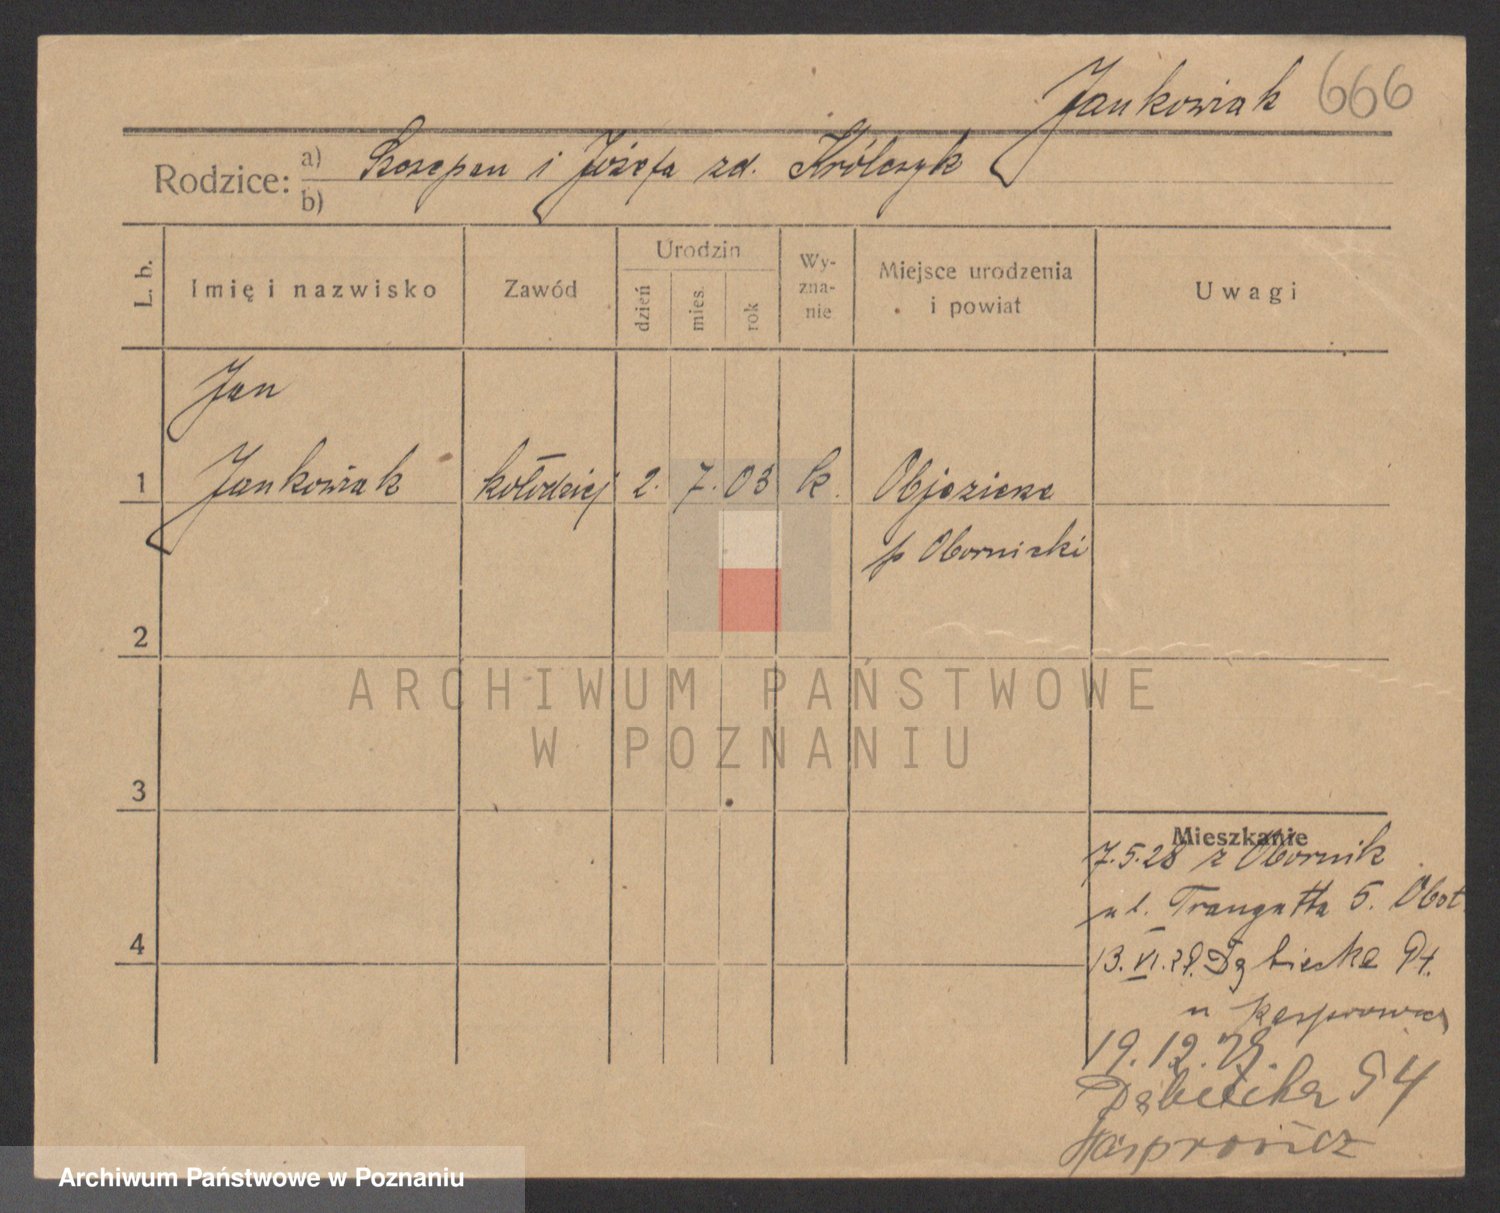 Jankowiak 666
Rodzice: a) Szczepan i Józefa zd. Królczyk
b)
L. b.
Imię i nazwisko
Zawód
Urodzin
dzień
mies.
rok
Wy-
zna-
nie
Miejsce urodzenia
i powiat
Uwagi
Jan
1 Jankowiak kołodziej 2. 7. 03 k. Objezierze
p Obornicki
2
ARCHIWUM PAŃSTWOWE
W POZNANIU
3
Mieszkanie
7.5.28 z Obornik
ul. Traugutta 5.
4
13.VI.28. Dąbiecka
u Kasprowicz
19.12.
Dąbiecka 54
Kasprowicz
Archiwum Państwowe w Poznaniu